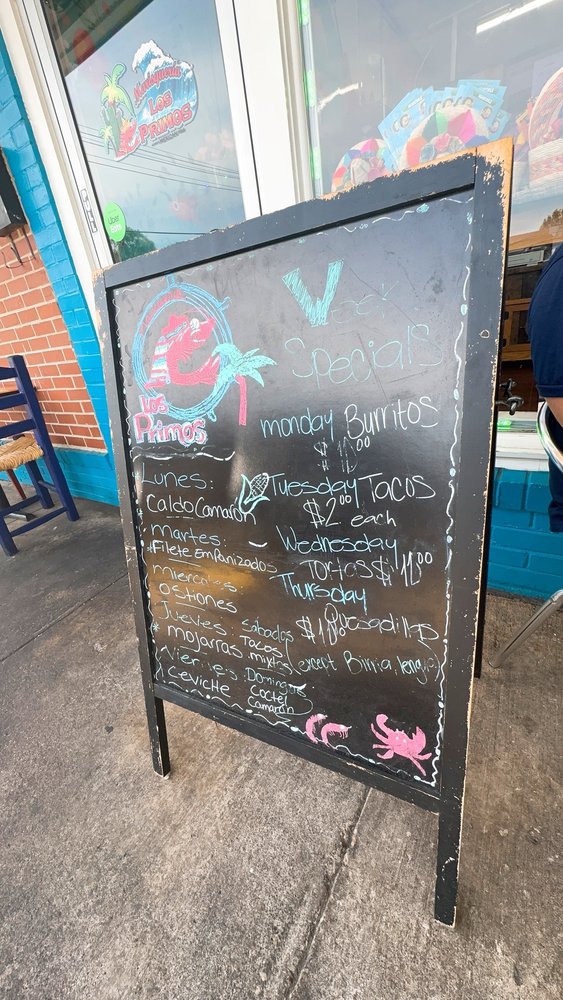 LOS
PRIMOS
Uber
Los
Primos
Week
Specials
monday Burritos
Tuesday Tacos
$2.00 each
Wednesday
Tortas $11.00
Thursday
Quesadillas
(except Birria, lengua)
Lunes:
Caldo Camaron
martes:
Filete Empanizados
miercoles:
Ostiones
Jueves:
mojarras
Viernes:
Ceviche
Sabados
Tacos
mixtos
Domingos
Coctel
Camarón